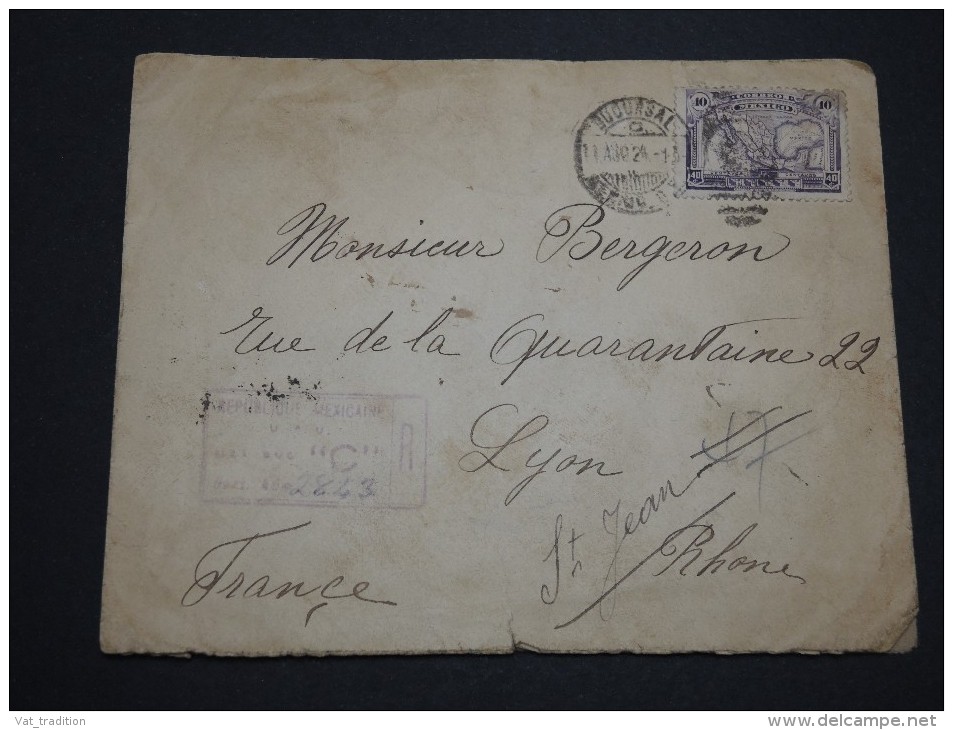 SUCURSAL
C
11 AGO 24 -13
40 CORREOS 40
MEXICO
40 40
Monsieur Bergeron
Rue de la Quarantaine 22
Lyon
St Jean
Rhone
France
REPUBLIQUE MEXICAINE
"C" R
2843
Vat_tradition
www.delcampe.net